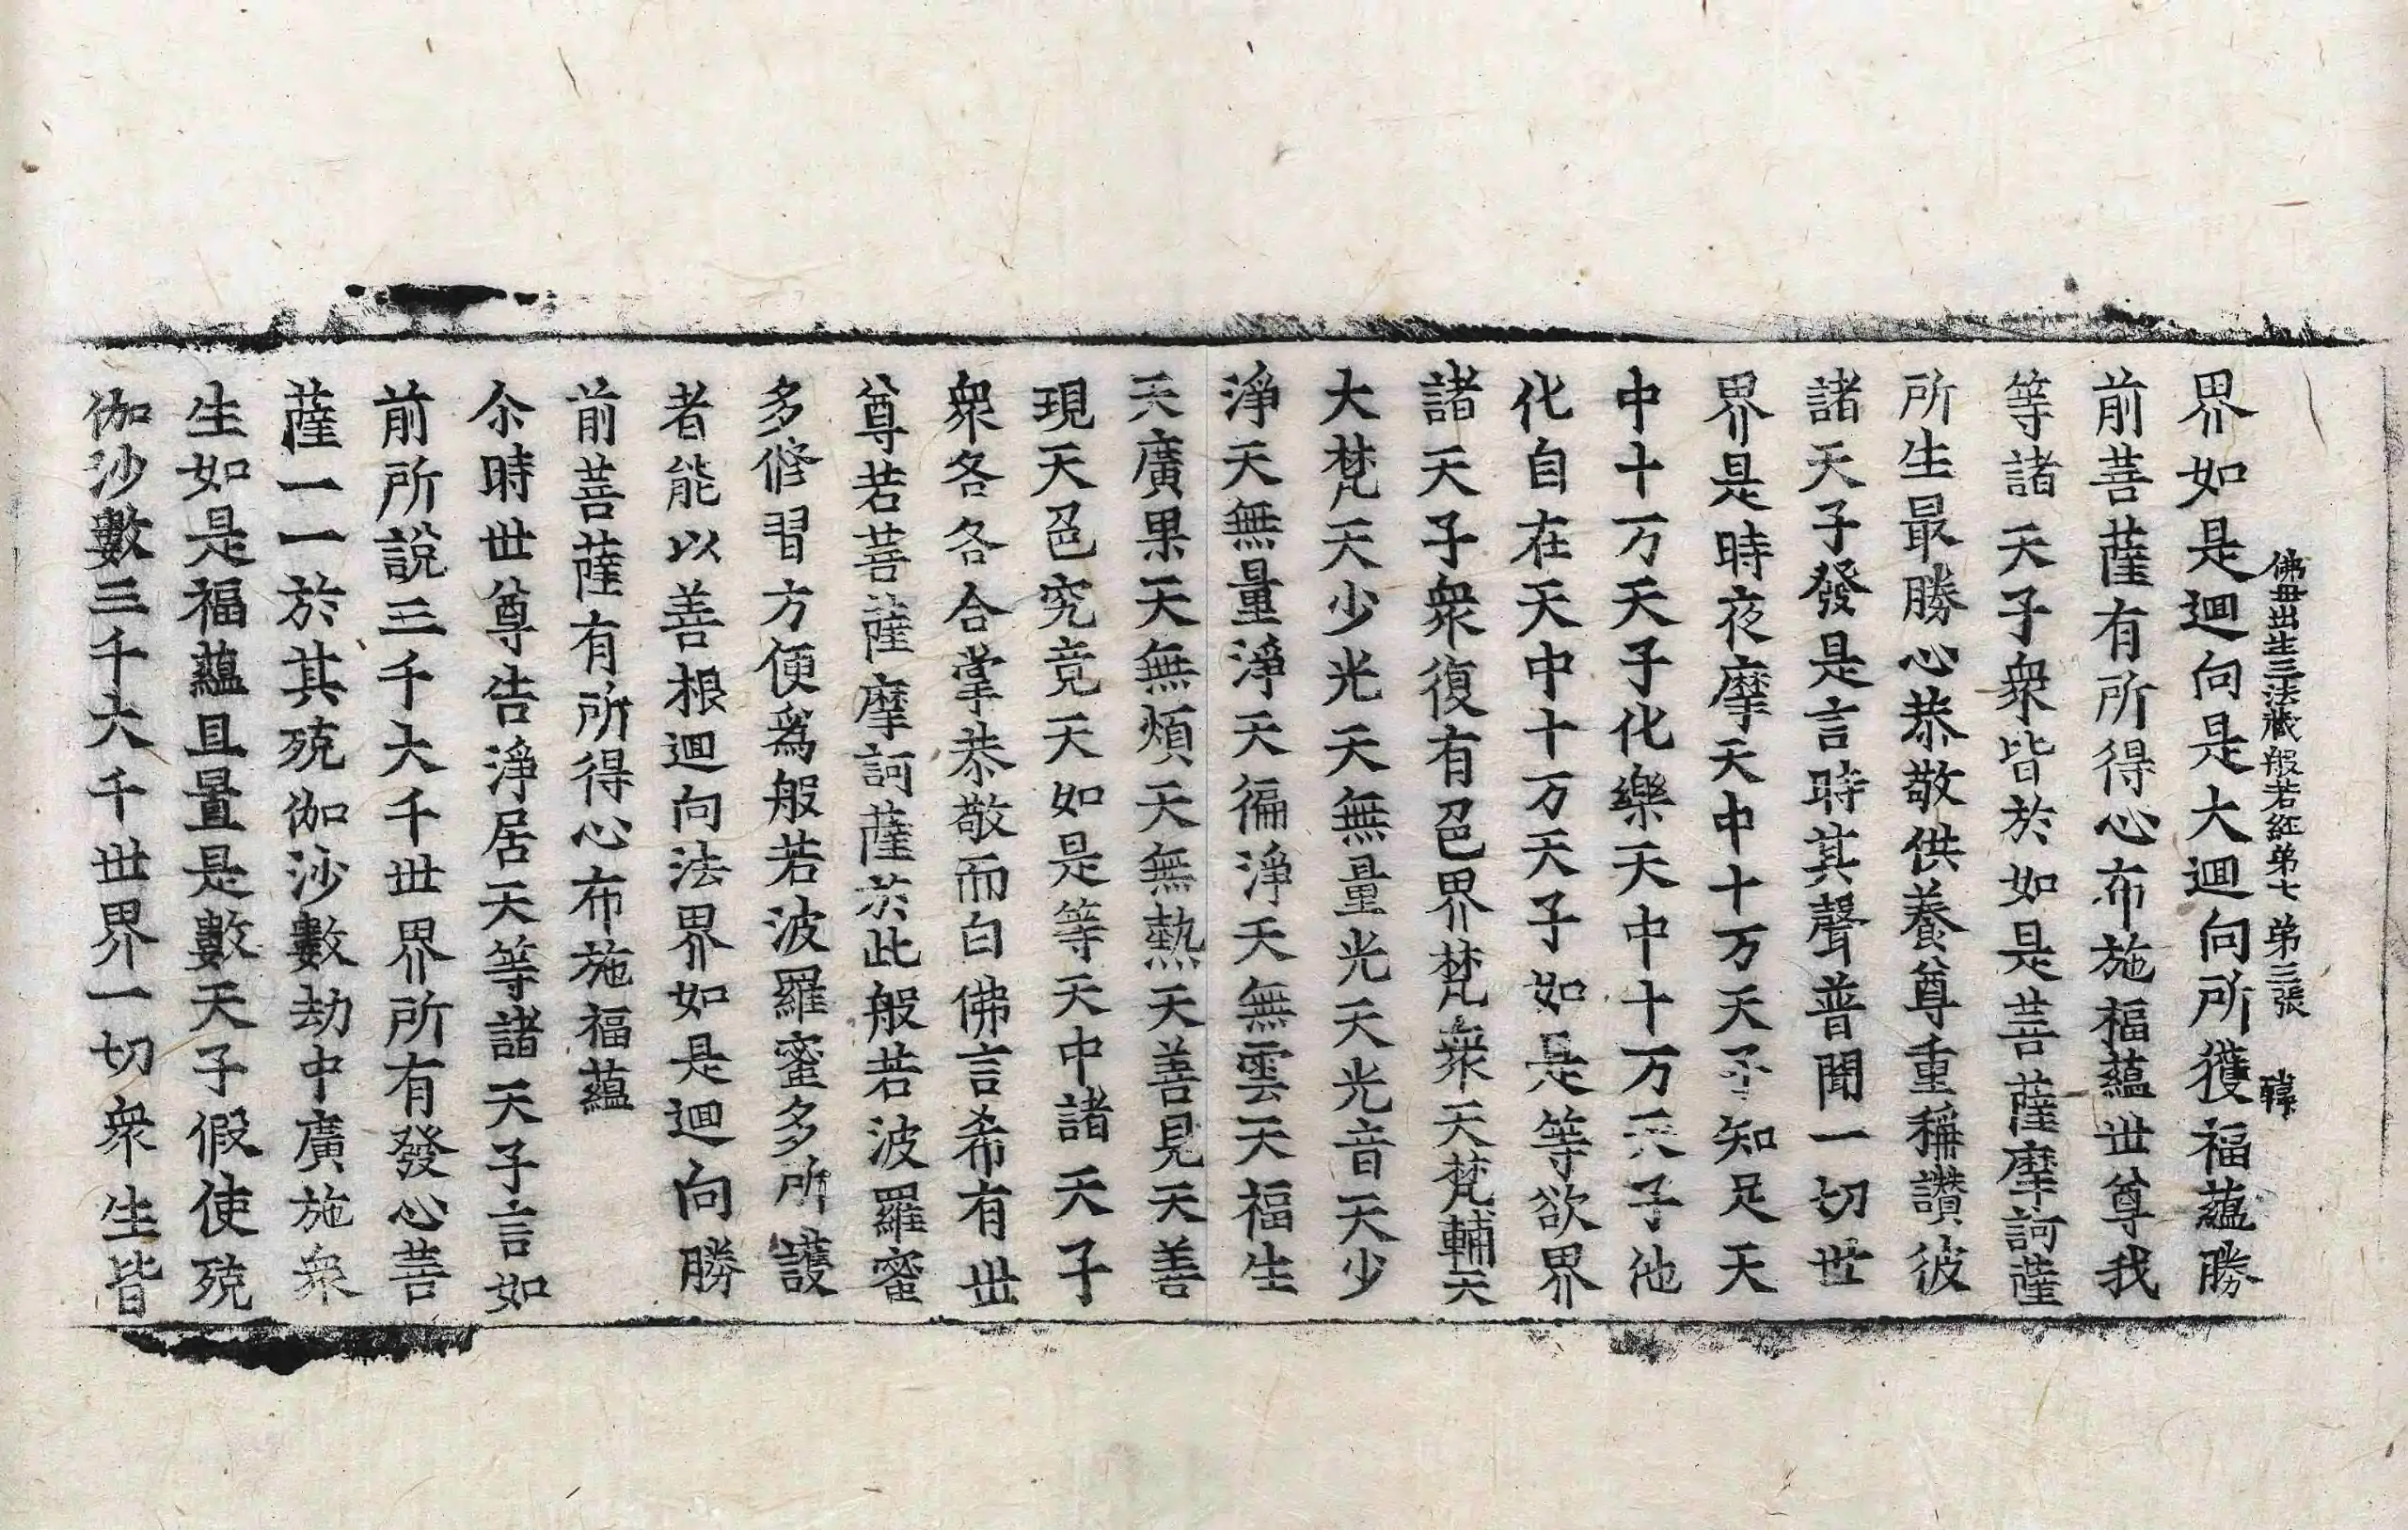 佛毋出生三法藏般若経弟七 弟三張 韓
界如是迴向是大迴向所獲福蘊勝
前菩薩有所得心布施福蘊世尊我
等諸天子衆皆於如是菩薩摩訶薩
所生最勝心恭敬供養尊重稱讚彼
諸天子發是言時其聲普聞一切世
界是時夜摩天中十万天子知足天
中十万天子化樂天中十万天子他
化自在天中十万天子如是等欲界
諸天子衆復有色界梵衆天梵輔天
大梵天少光天無量光天光音天少
淨天無量淨天徧淨天無雲天福生
天廣果天無煩天無熱天善見天善
現天色究竟天如是等天中諸天子
衆各各合掌恭敬而白佛言希有世
尊若菩薩摩訶薩於此般若波羅蜜
多修習方便爲般若波羅蜜多所護
者能以善根迴向法界如是迴向勝
前菩薩有所得心布施福蘊
尒時世尊告淨居天等諸天子言如
前所說三千大千世界所有發心菩
薩一一於其殑伽沙數劫中廣施衆
生如是福蘊且置是數天子假使殑
伽沙數三千大千世界一切衆生皆